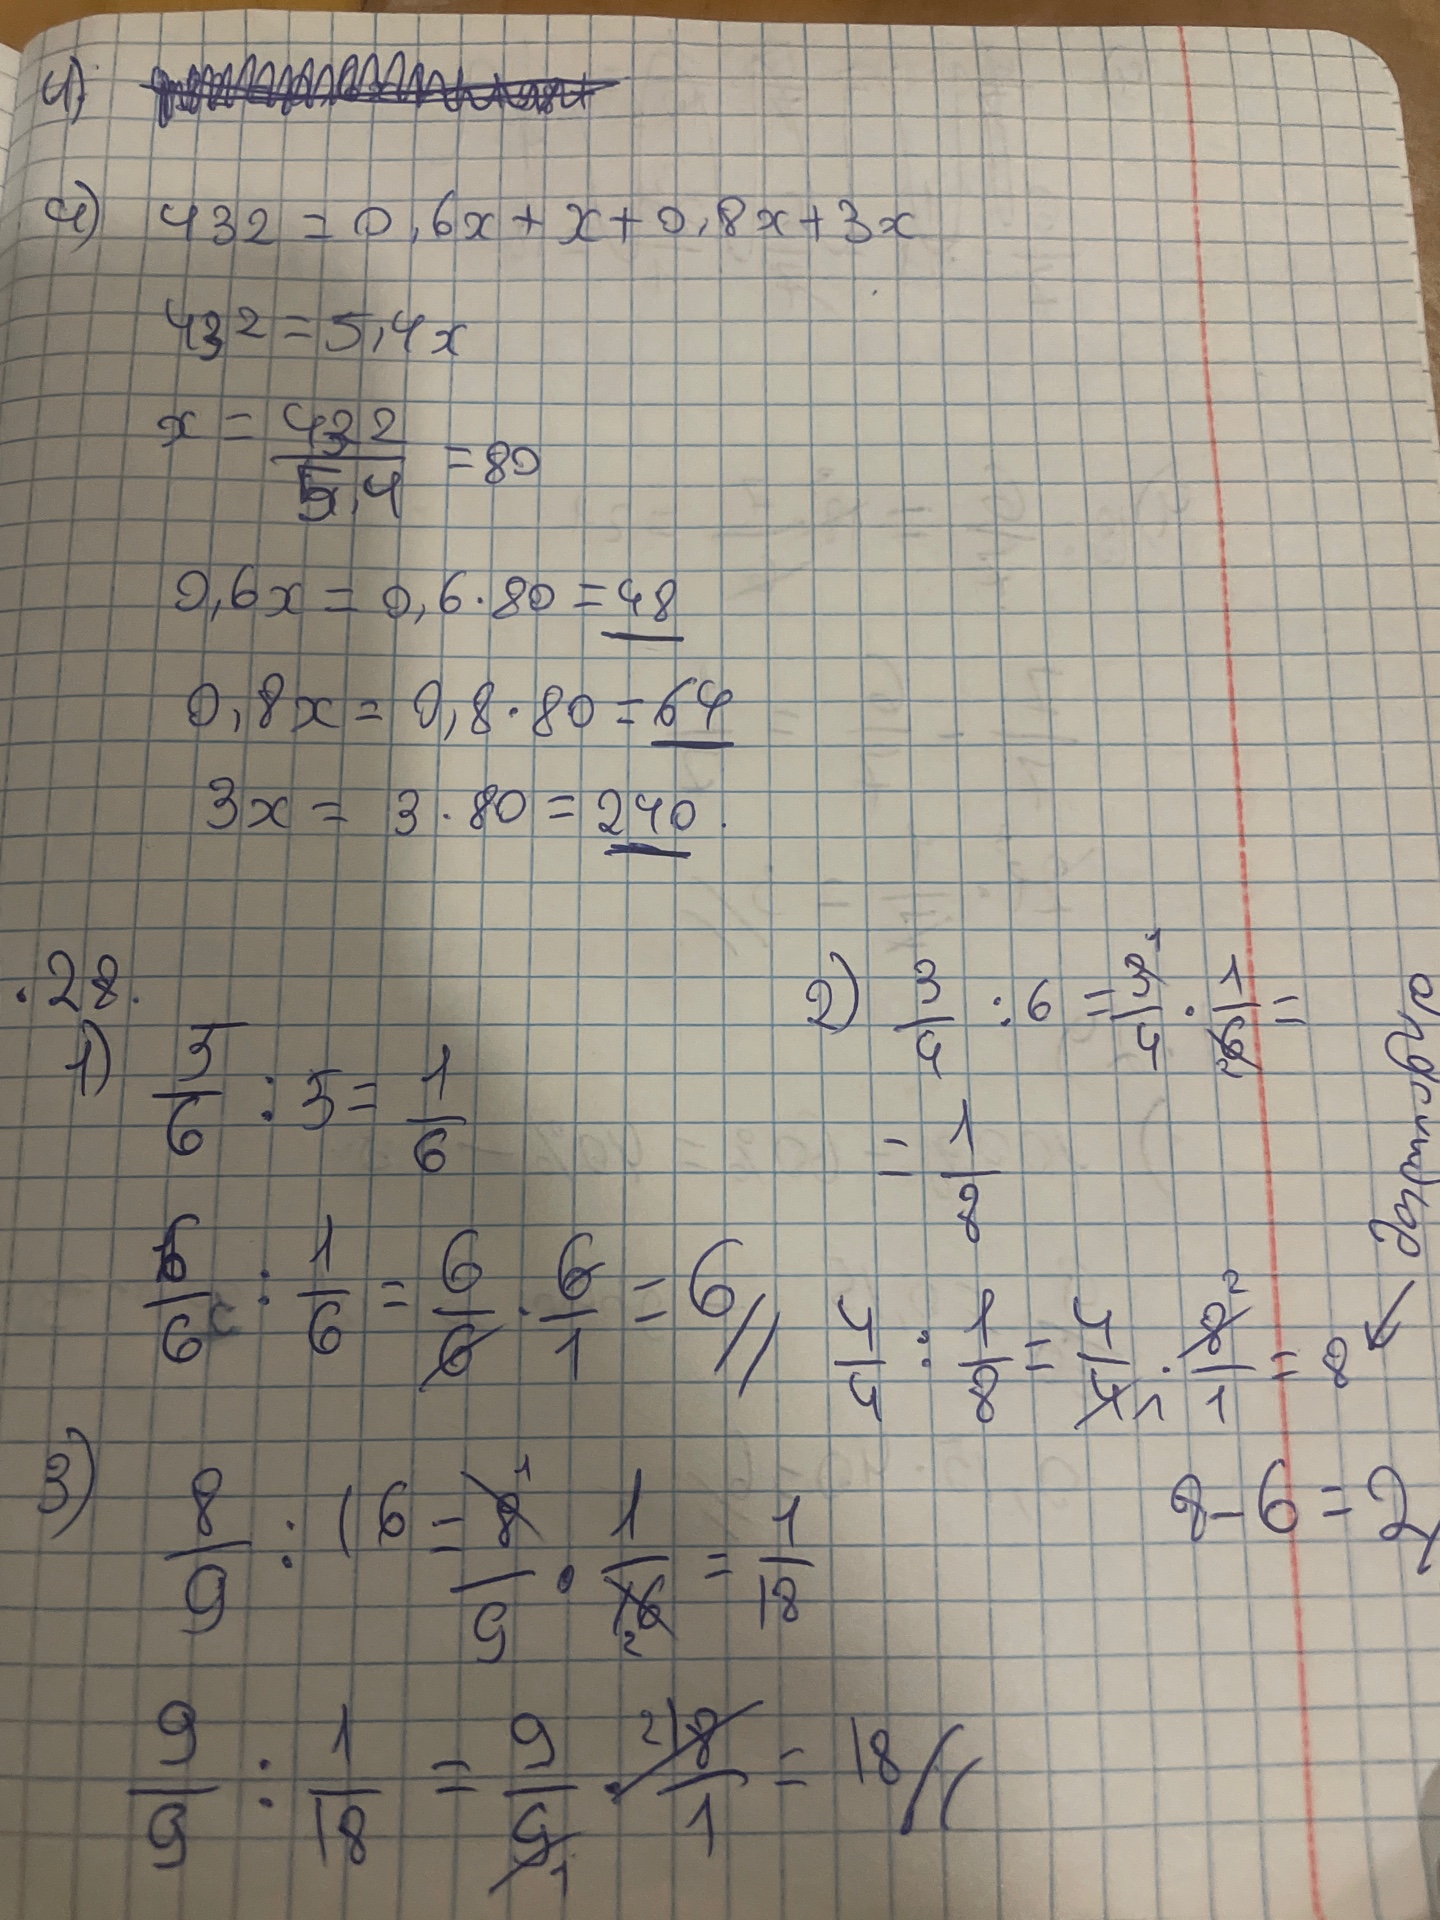 4)
4) 432 = 0,6x + x + 0,8x + 3x
432 = 5,4x
x = 432/5,4 = 80
0,6x = 0,6 · 80 = 48
0,8x = 0,8 · 80 = 64
3x = 3 · 80 = 240.
.28.
1) 5/6 : 5 = 1/6
6/6 : 1/6 = 6/6 · 6/1 = 6//
2) 3/4 : 6 = 3/4 · 1/6 =
= 1/8
4/4 : 1/8 = 4/4 · 8/1 = 8
8 - 6 = 2
3) 8/9 : 16 = 8/9 · 1/16 = 1/18
9/9 : 1/18 = 9/9 · 18/1 = 18//